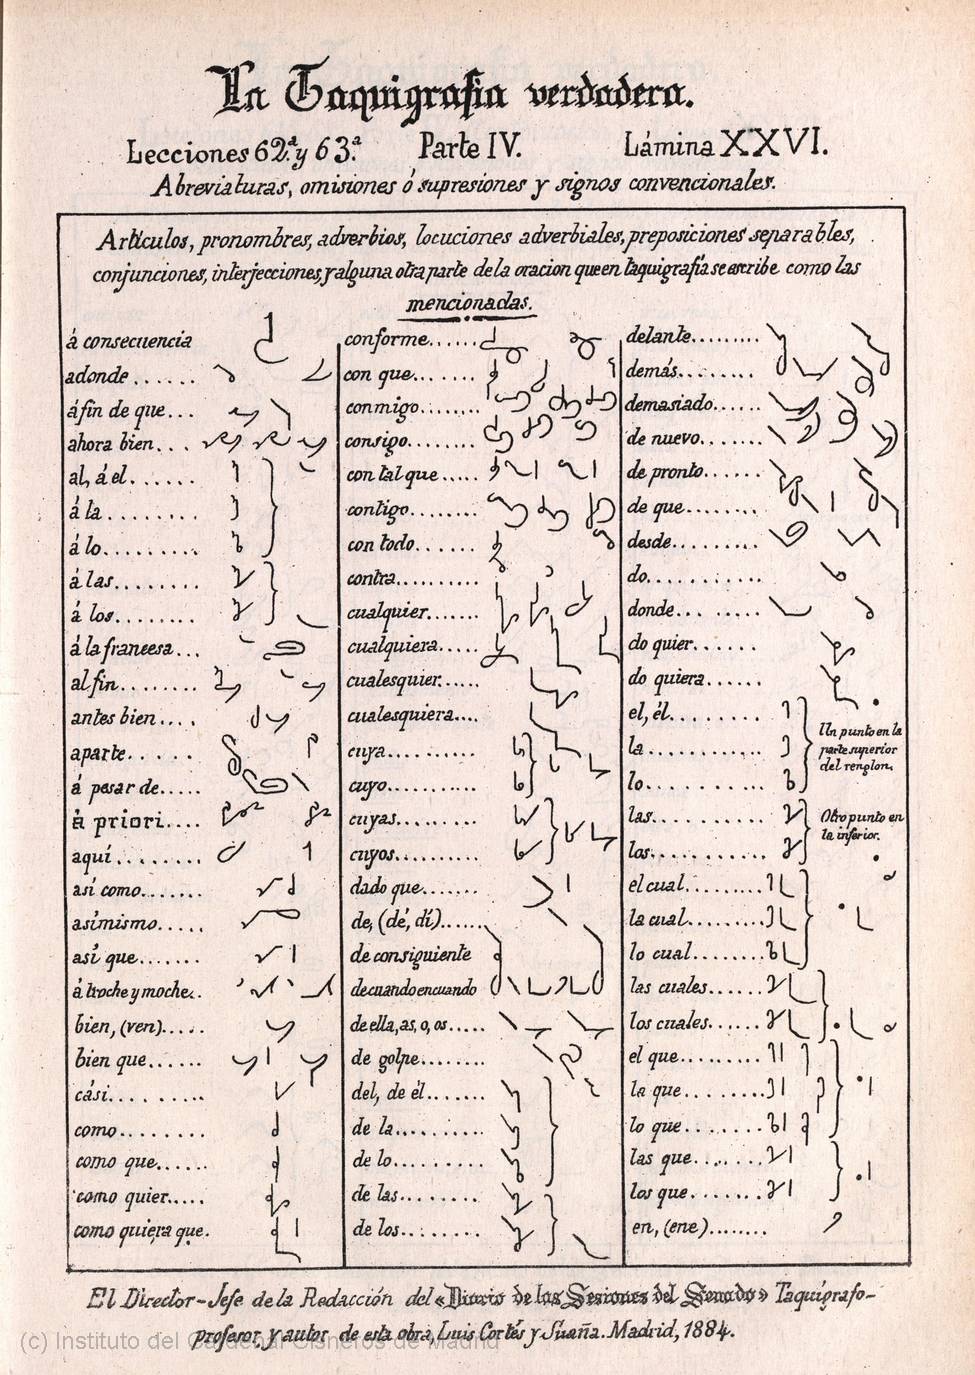 La Taquigrafia verdadera.
Lecciones 62.ª y 63.ª Parte IV. Lámina XXVI.
Abreviaturas, omisiones ó supresiones y signos convencionales.
Artículos, pronombres, adverbios, locuciones adverbiales, preposiciones separables,
conjunciones, interjecciones, y alguna otra parte de la oracion que en taquigrafía se escribe como las
mencionadas.
á consecuencia
adonde......
á fin de que...
ahora bien...
al, á el......
á la.........
á lo.........
á las........
á los........
á la francesa...
al fin........
antes bien....
aparte......
á pesar de.....
à priori....
aquí........
así como.......
asimismo.....
así que.......
á troche y moche..
bien, (ven).....
bien que......
cási.........
como........
como que......
como quier.....
como quiera que.
conforme......
con que.......
conmigo........
consigo........
con tal que.....
contigo........
con todo......
contra..........
cualquier.......
cualquiera.....
cualesquier......
cualesquiera....
cuya...........
cuyo...........
cuyas..........
cuyos..........
dado que.......
de, (dé, dí)......
de consiguiente
de cuando en cuando
de ella, as, o, os.....
de golpe........
del, de él.......
de la...........
de lo...........
de las.........
de los.........
delante.........
demás.........
demasiado......
de nuevo.......
de pronto......
de que........
desde..........
do...........
donde.........
do quier.......
do quiera......
el, él.........
la............
lo............
Un punto en la
parte superior
del renglon.
las...........
los...........
Otro punto en
la inferior.
el cual........
la cual........
lo cual........
las cuales......
los cuales......
el que.........
la que.........
lo que........
las que.......
los que.......
en, (ene)........
El Director-Jefe de la Redacción del «Diario de las Sesiones del Senado» Taquígrafo-
profesor, y autor de esta obra, Luis Cortés y Suaña. Madrid, 1884.
(c) Instituto del Cardenal Cisneros de Madrid